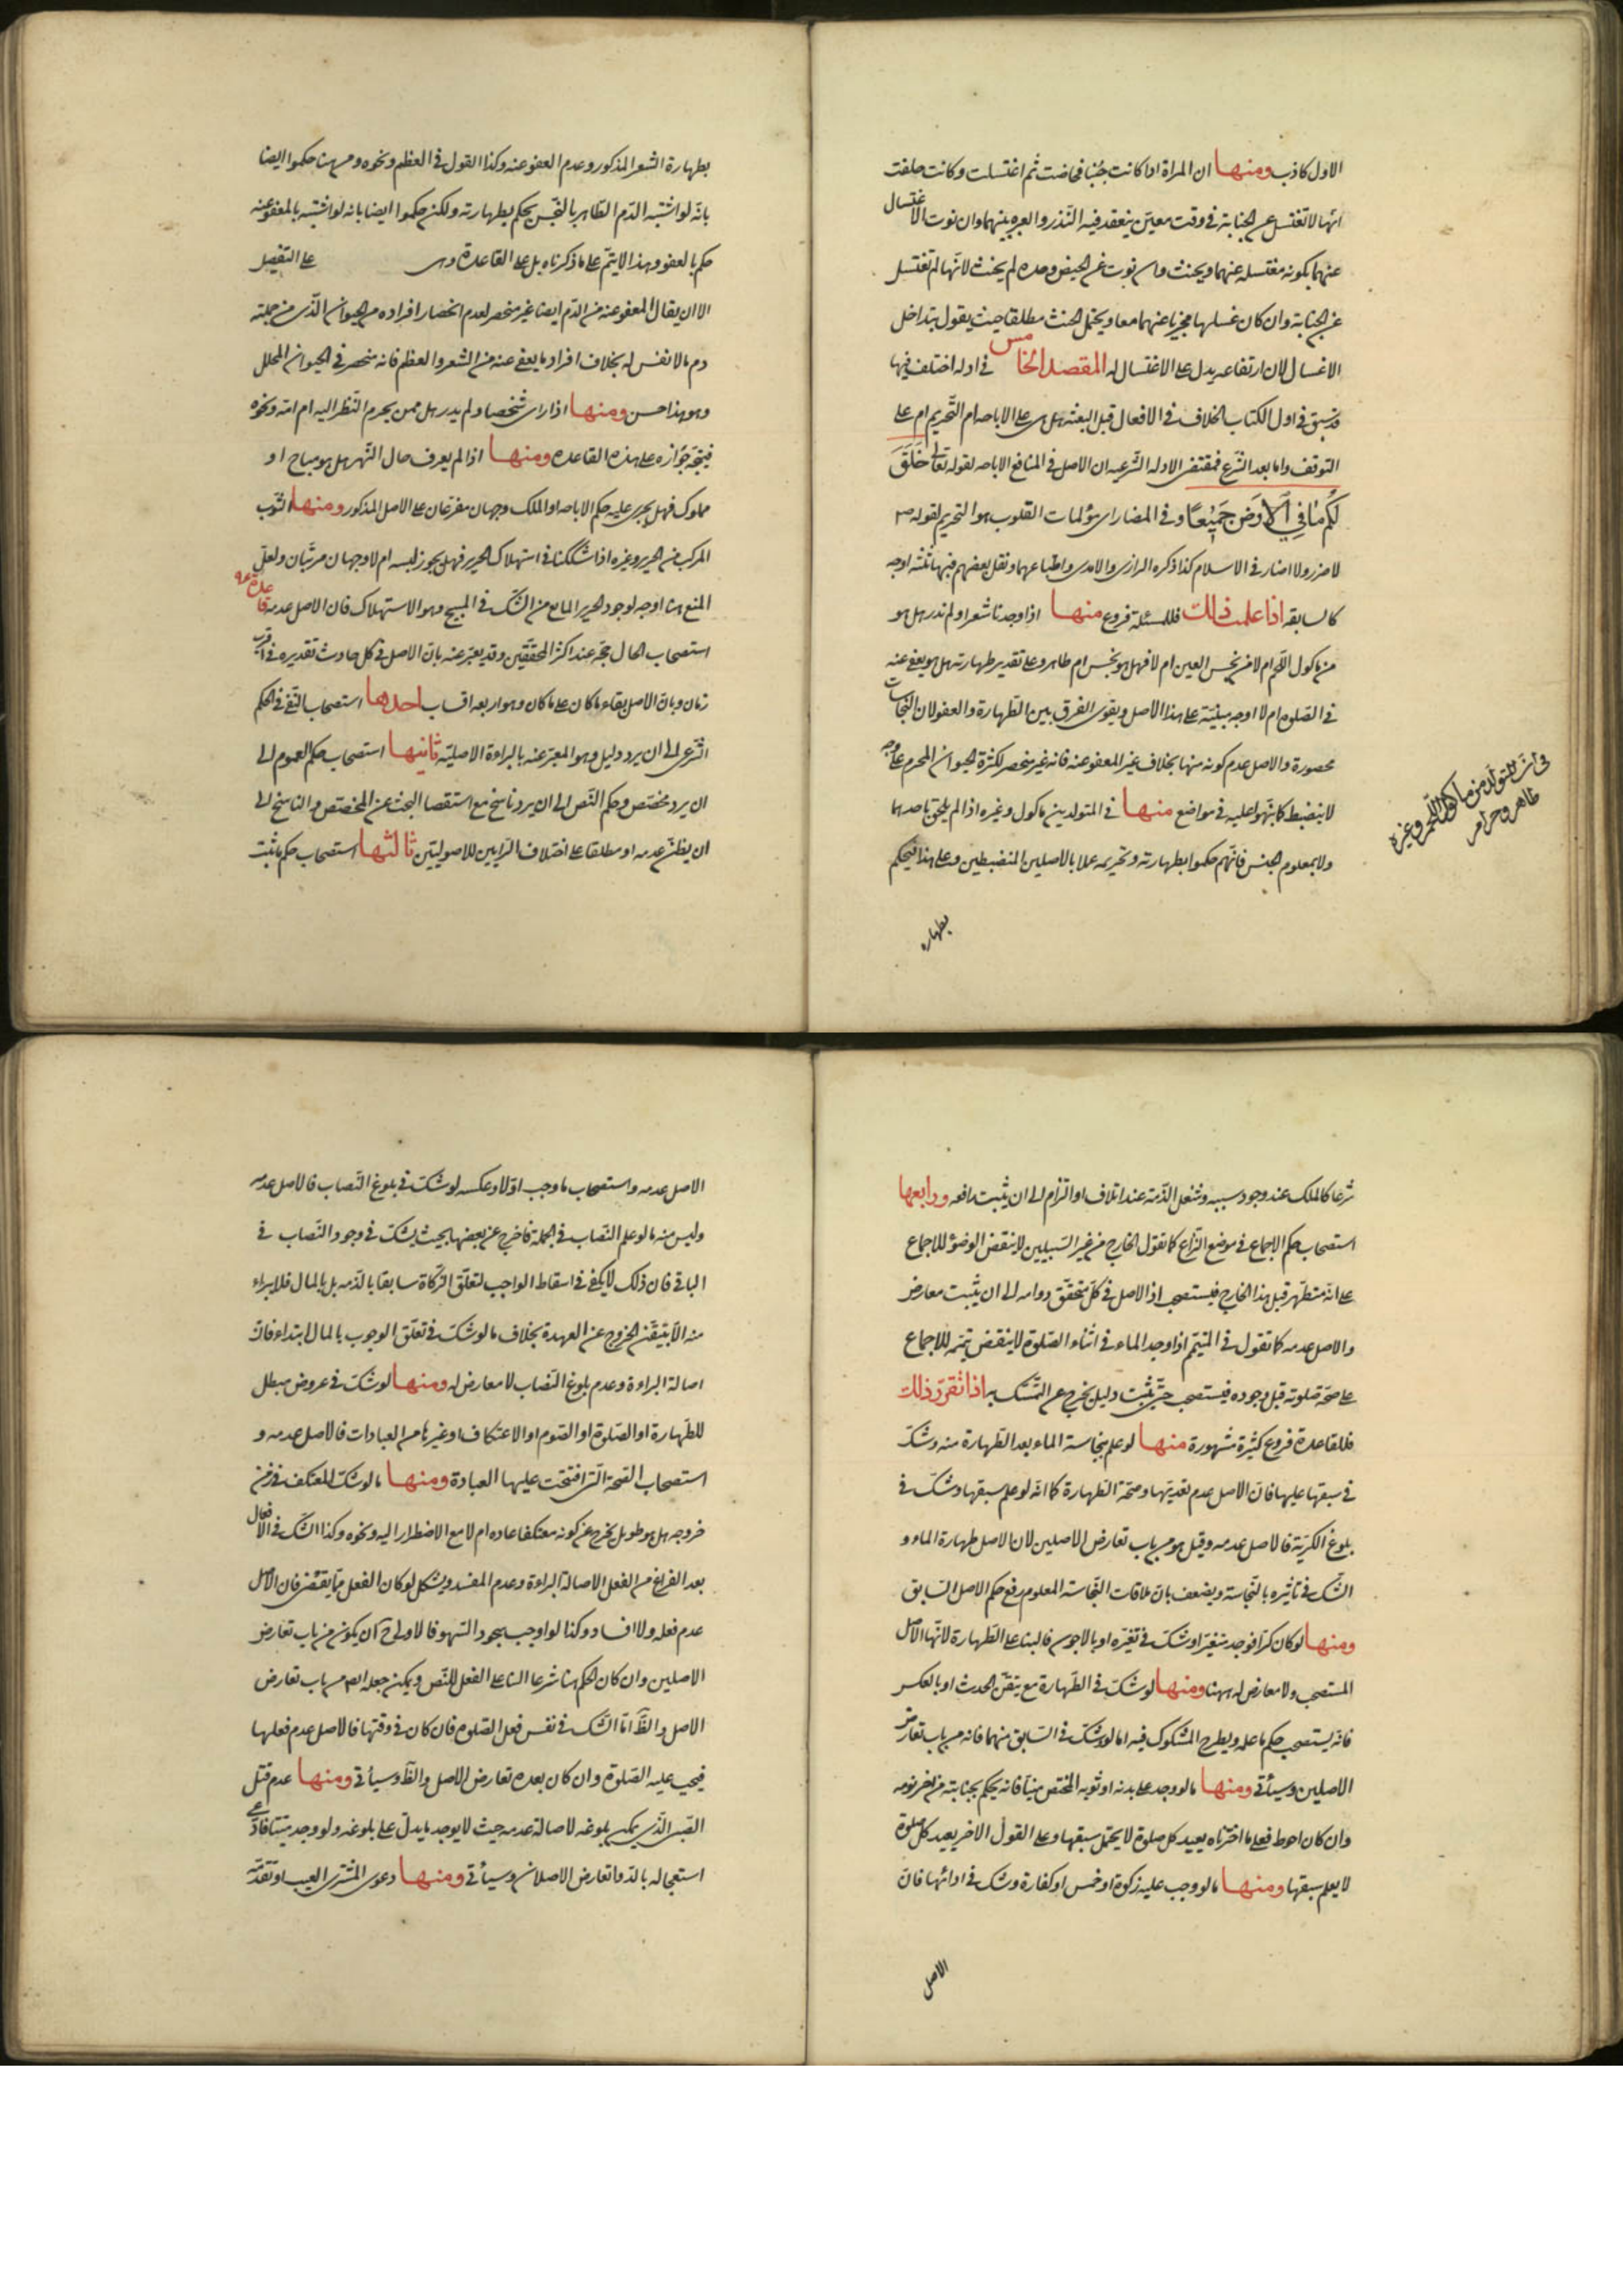 الاول كاذب ومنها ان المراة اذا كانت جنبا فحاضت ثم اغتسلت وكانت حلفت
انها لا تغتسل عن الجنابة في وقت معين ينعقد فيه النذر والعبرة بنيتهما وان نوت الاغتسال
عنهما بكونه مغتسلة عنهما ويحنث وان نوت عن الحيض وحده لم يحنث لانها لم تغتسل
عن الجنابة وان كان غسلها مجزيا عنهما معا ويحتمل الحنث مطلقا حيث يقول بتداخل
الاغسال لان ارتفاعه يدل على الاغتسال له المقصد الخامس في ادلة اختلف فيها
قد سبق في اول الكتاب الخلاف في الافعال قبل البعثة هل هي على الاباحه ام التحريم ام على
التوقف واما بعد الشرع فمقتضى الادله الشرعيه ان الاصل في المنافع الاباحه لقوله تعالى خلق
لكم ما في الارض جميعا وفي المضار اي مؤلمات القلوب هو التحريم لقوله ص
لا ضرر ولا اضرار في الاسلام كذا ذكره الرازي والامدي واطباعهما ونقل بعضهم فيها ثلثه اوجه
كالسابقه اذا علمت ذلك فللمسئلة فروع منها اذا وجدنا شعرا ولم ندر هل هو
من ماكول اللحم ام لا من نجس العين ام لا فهل هو نجس ام طاهر وعلى تقدير طهارته هل هو يعفى عنه
في الصلوه ام لا اوجه مبنية على هذا الاصل ويقوى الفرق بين الطهارة والعفو لان النجاسات
محصورة والاصل عدم كونه منها بخلاف غير المعفو عنه فانه غير منحصر لكثرة الحيوان المحرم على وجه
لا ينضبط كما نبهوا عليه في مواضع منها في المتولد بين ماكول وغيره اذا لم يلحق باحدهما
ولا بمعلوم الجنس فانهم حكموا بطهارته وتحريمه عملا بالاصلين المنضبطين وعلى هذا فيحكم
في ان المتولد من ماكول اللحم وغيره
طاهر وحرام
بطهارة
بطهارة الشعر المذكور وعدم العفو عنه وكذا القول في العظم ونحوه ومن هنا حكموا ايضا
بانه لو اشتبه الدم الطاهر بالنجس يحكم بطهارته ولكن حكموا ايضا بانه لو اشتبه بالمعفو عنه
حكم بالعفو وهذا لا يتم على ما ذكرناه بل على القاعدة وهي على التفصيل
الا ان يقال المعفو عنه من الدم ايضا غير منحصر لعدم انحصار افراده من الحيوان الذي من جملته
دم ما لا نفس له بخلاف افراد ما يعفى عنه من الشعر والعظم فانه منحصر في الحيوان المحلل
وهو هذا حسن ومنها اذا راى شخصا ولم يدر هل ممن يحرم النظر اليه ام امته ونحوه
فيتجه جوازه على هذه القاعده ومنها اذا لم يعرف حال النهر هل هو مباح او
مملوك فهل يجرى عليه حكم الاباحه او الملك وجهان مفرعان على الاصل المذكور ومنها الثوب
المركب من الحرير وغيره اذا شككنا في استهلاك الحرير فهل يجوز لبسه ام لا وجهان مرتبان ولعل
المنع هنا اوجه لوجود الحرير المانع من الشك في المبيح وهو الاستهلاك فان الاصل عدمه قاعدة
استصحاب الحال حجة عند اكثر المحققين وقد يعبر عنه بان الاصل في كل حادث تقديره في اقرب
زمان وبان الاصل بقاء ما كان على ما كان وهو اربعه اقسام احدها استصحاب النفي في الحكم
الشرعي الى ان يرد دليل وهو المعبر عنه بالبراءة الاصلية ثانيها استصحاب حكم العموم الى
ان يرد مخصص وحكم النص الى ان يرد ناسخ مع استقصا البحث عن المخصص والناسخ الى
ان يظن عدمه او مطلقا على اختلاف الرايين للاصوليين ثالثها استصحاب حكم ما ثبت
شرعا كالملك عند وجود سببه وشغل الذمة عند اتلاف او التزام الى ان يثبت دافعه ورابعها
استصحاب حكم الاجماع في موضع النزاع كما نقول الخارج من غير السبيلين لا ينقض الوضوء للاجماع
على انه متطهر قبل هذا الخارج فيستصحب اذ الاصل في كل متحقق دوامه الى ان يثبت معارض
والاصل عدمه كما نقول في المتيمم اذا وجد الماء في اثناء الصلوة لا ينقض تيممه للاجماع
على صحة صلوته قبل وجوده فيستصحب حتى يثبت دليل يخرج عن التمسك به اذا تقرر ذلك
فللقاعدة فروع كثيرة مشهورة منها لو علم بنجاسة الماء بعد الطهارة منه وشك
في سبقها عليها فان الاصل عدم تقدمها وصحة الطهارة كما انه لو علم سبقها وشك في
بلوغ الكرية فالاصل عدمه وقيل هو من باب تعارض الاصلين لان الاصل طهارة الماء و
الشك في تاثيره بالنجاسة ويضعف بان ملاقات النجاسة المعلوم رفع حكم الاصل السابق
ومنها لو كان كرا فوجد متغيرا وشك في تغيره او بالاجون فالبناء على الطهارة لانها الاصل
المستصحب ولا معارض له ههنا ومنها لو شك في الطهارة مع تيقن الحدث او بالعكس
فانه يستصحب حكم ما علمه ويطرح المشكوك فيه اما لو شك في السابق منهما فانه من باب تعارض
الاصلين وسيأتي ومنها ما لو وجد على بدنه او ثوبه المختص منيا فانه يحكم بجنابته من اخر نومه
وان كان احوط فعلى ما اخترناه يعيد كل صلوة لا يحتمل سبقها وعلى القول الاخر يعيد كل صلوة
لا يعلم سبقها ومنها ما لو وجب عليه زكوة او خمس او كفارة وشك في ادائها فان
الاصل
الاصل عدمه واستصحاب ما وجب اولا وعكسه لو شك في بلوغ النصاب فالاصل عدمه
وليس منه ما لو علم النصاب في الجملة فاخرج عن بعضها بحيث يشك في وجود النصاب في
الباقي فان ذلك لا يكفي في اسقاط الواجب لتعلق الزكاة سابقا بالذمه بل بالمال فلا يبراء
منه الا بتيقن الخروج عن العهدة بخلاف ما لو شك في تعلق الوجوب بالمال ابتداء فان
اصالة البراءة وعدم بلوغ النصاب لا معارض له ومنها لو شك في عروض مبطل
للطهارة او الصلوة او الصوم او الاعتكاف او غيرها من العبادات فالاصل عدمه و
استصحاب الصحة التي افتتحت عليها العبادة ومنها ما لو شك المعتكف في زمن
خروجه هل هو طويل يخرج عن كونه معتكفا عاده ام لا مع الاضطرار اليه ونحوه وكذا الشك في الافعال
بعد الفراغ من الفعل لاصالة البراءة وعدم المفسد ويشكل لو كان الفعل مما يقضى فان الاصل
عدم فعله ولا افساد وكذا لو اوجب سجود السهو فالاولى ح ان يكون من باب تعارض
الاصلين وان كان الحكم هنا شرعا البناء على الفعل للنص ويمكن جعله ايضا من باب تعارض
الاصل والظ اما الشك في نفس فعل الصلوه فان كان في وقتها فالاصل عدم فعلها
فيجب عليه الصلوة وان كان بعده تعارض الاصل والظ وسيأتي ومنها عدم قتل
الصبى الذي يمكن بلوغه لاصالة عدمه حيث لا يوجد ما يدل على بلوغه ولو وجد منبتا فادعى
استعجاله بالدواء تعارض الاصلان وسيأتي ومنها دعوى المشتري العيب او تقدمه